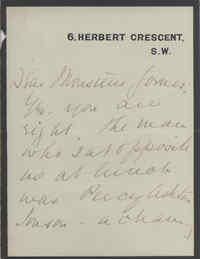 6, HERBERT CRESCENT,
S.W.
Dear Monsieur
Yes. you are
right. the man
who sat opposite
us at lunch
was Percy
Jonson - a charm